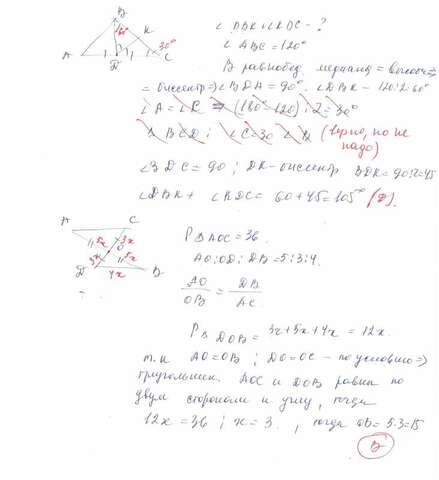 B
60°
K
A
D
C
30°
∠DBK + ∠KDC - ?
∠ABC = 120°
В равнобед. медиана = высоте =
= биссектр ⇒ ∠BDA = 90°. ∠DBK - 120:2=60°
∠A = ∠C ⇒ (180° - 120) : 2 = 30°
∠C = 30 (верно, но не надо)
∠BDC = 90; DK - биссектр BDK = 90:2=45
∠DBK + ∠KDC = 60 + 45 = 105° (D).
A
C
5x
3x
O
3x
5x
D
4x
B
P△AOC = 36.
AO : OD : DB = 5:3:4.
AO/OB = DB/AC
P△DOB = 3x + 5x + 4x = 12x.
т.к AO = OB ; DO = OC - по условию ⇒
треугольник. AOC и DOB равны по
двум сторонам и углу, тогда
12x = 36 ; x = 3. , тогда OB = 5·3 = 15
B